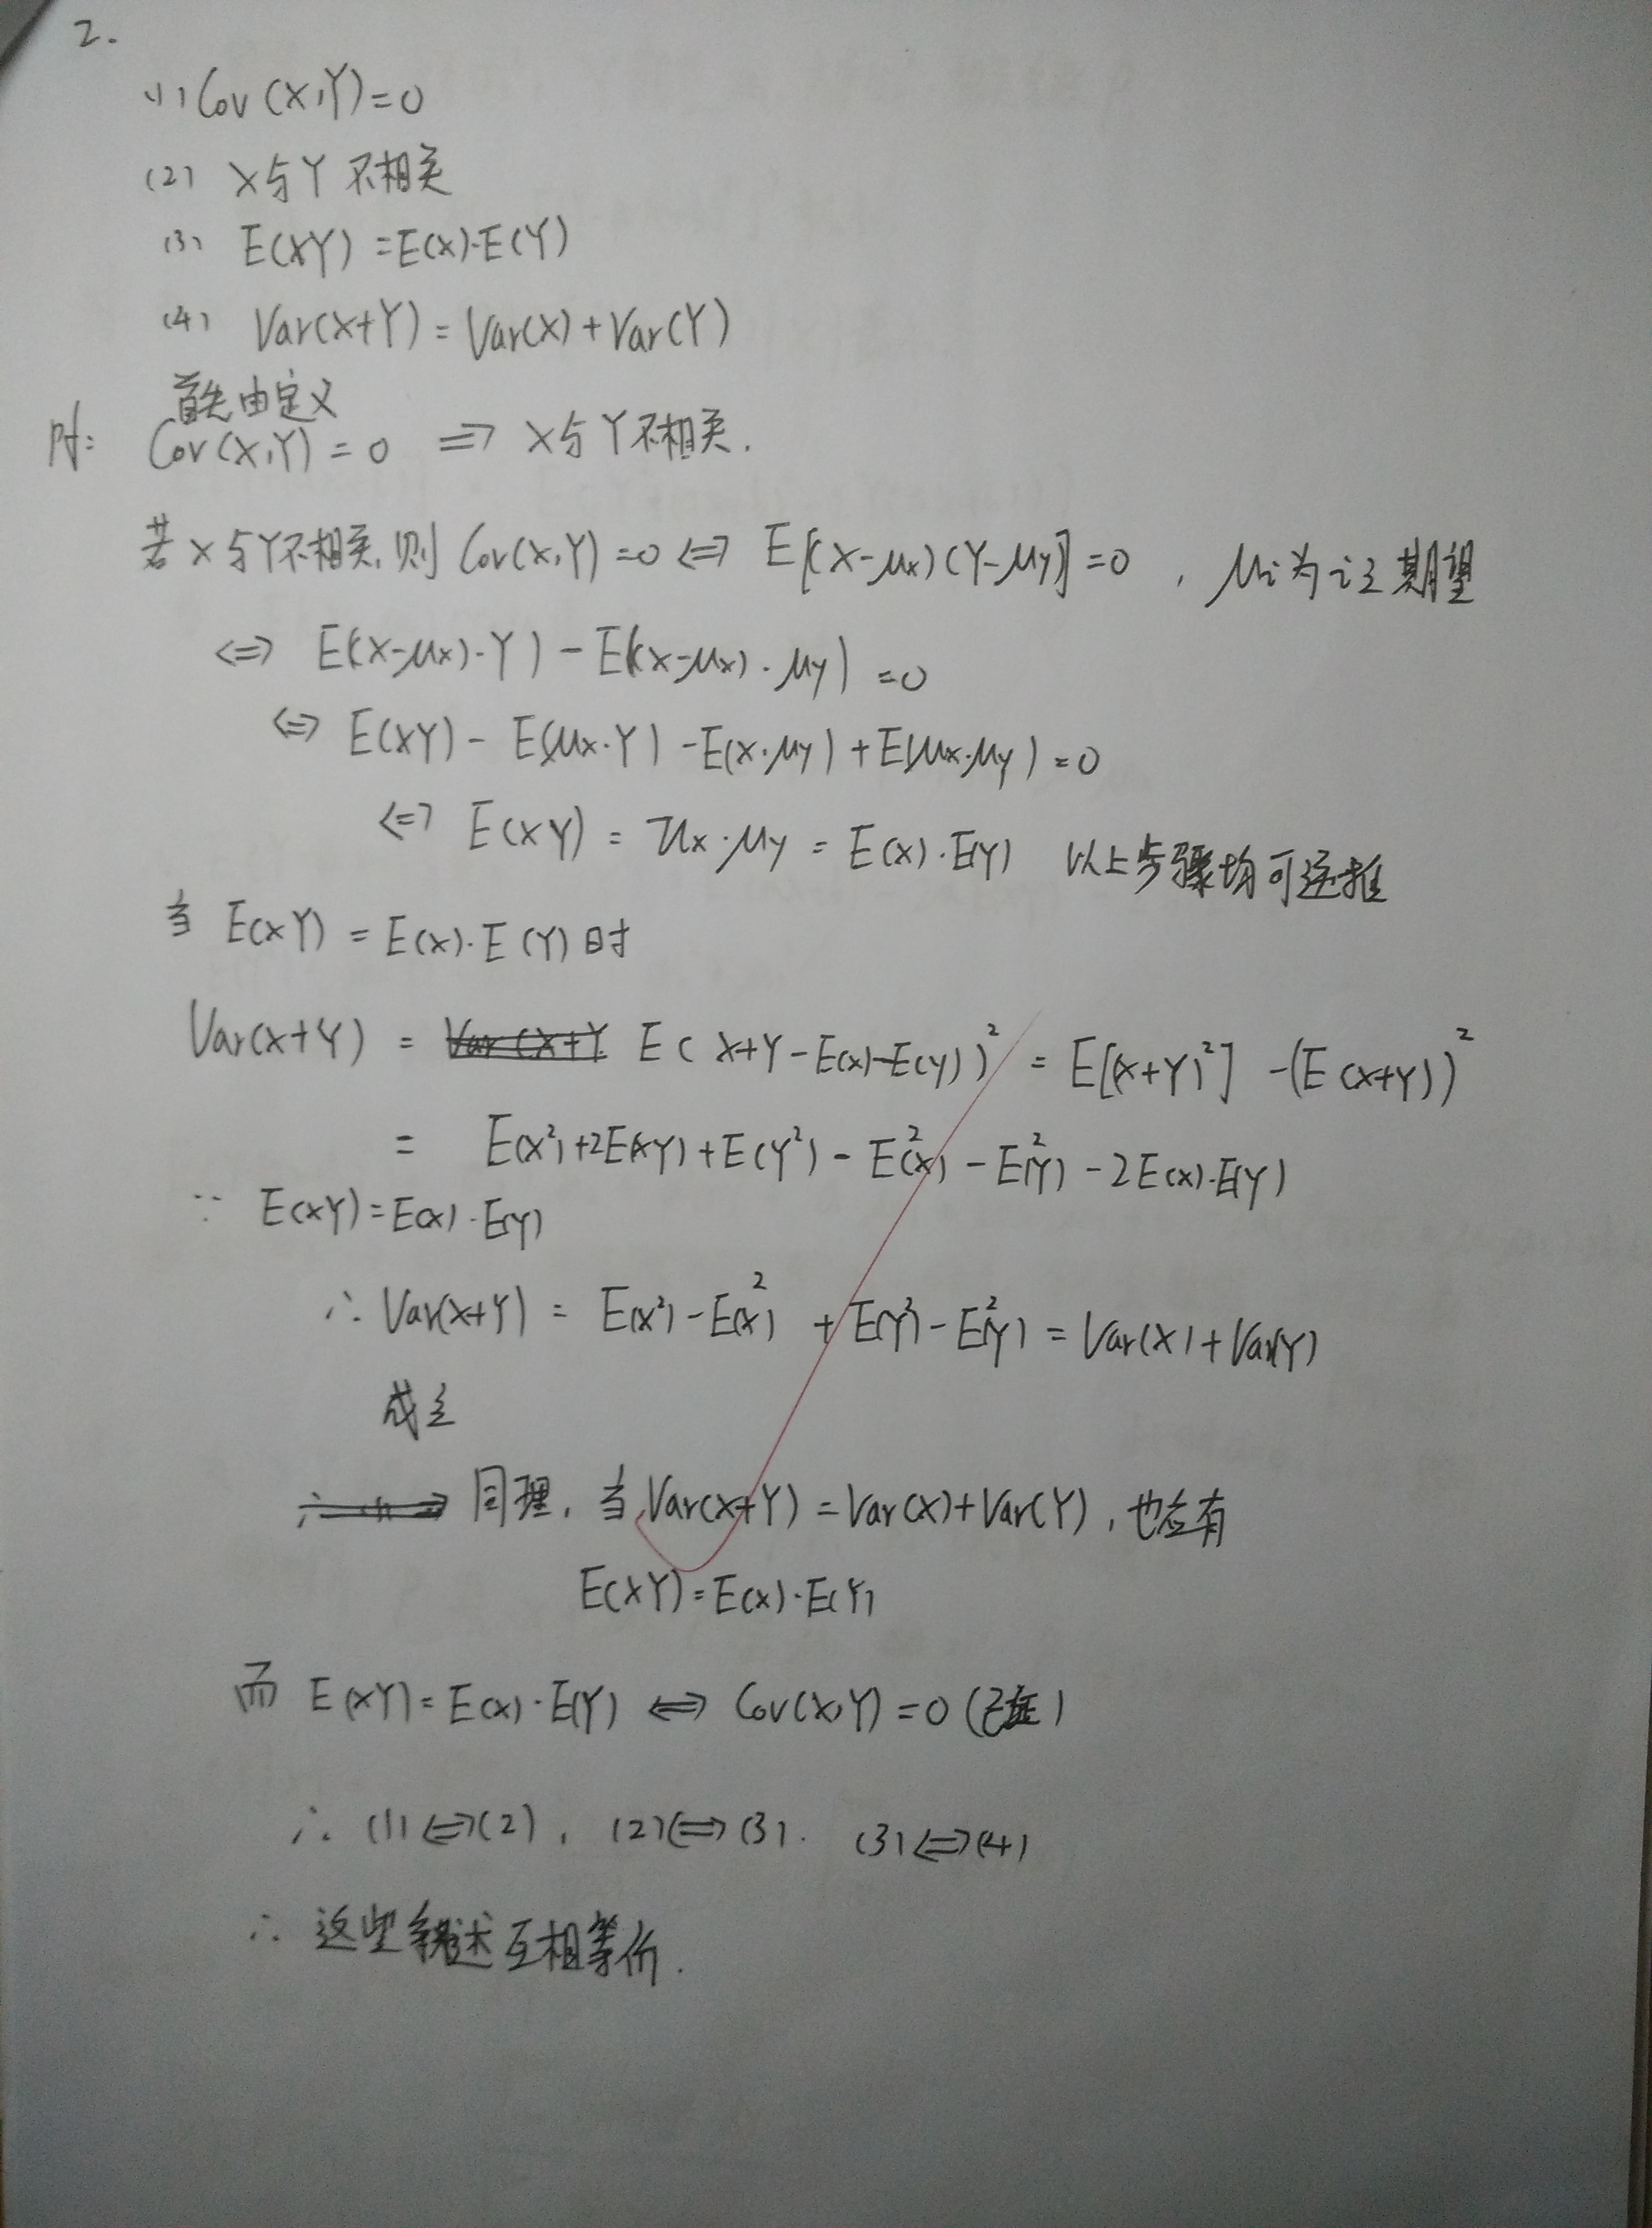 2.
(1) Cov(X,Y)=0
(2) X与Y 不相关
(3) E(XY)=E(X)·E(Y)
(4) Var(X+Y)=Var(X)+Var(Y)
首先由定义
Cov(X,Y)=0 ⇒ X与Y不相关.
若X与Y不相关,则 Cov(X,Y)=0 ⇔ E[(X-μx)(Y-μy)]=0 , μi为i之期望
⇔ E((X-μx)·Y)-E((X-μx)·μy)=0
⇔ E(XY)-E(μx·Y)-E(X·μy)+E(μx·μy)=0
⇔ E(XY)=μx·μy=E(X)·E(Y) 以上步骤均可逆推
当 E(XY)=E(X)·E(Y)时
Var(X+Y)= E(X+Y-E(X)-E(Y))²=E[(X+Y)²]-(E(X+Y))²
= E(X²)+2E(XY)+E(Y²)-E²(X)-E²(Y)-2E(X)·E(Y)
∵ E(XY)=E(X)·E(Y)
∴ Var(X+Y)=E(X²)-E²(X)+E(Y²)-E²(Y)=Var(X)+Var(Y)
成立
同理,当Var(X+Y)=Var(X)+Var(Y),也应有
E(XY)=E(X)·E(Y)
而 E(XY)=E(X)·E(Y) ⇔ Cov(X,Y)=0 (已证)
∴ (1)⇔(2), (2)⇔(3). (3)⇔(4)
∴ 这些叙述互相等价.